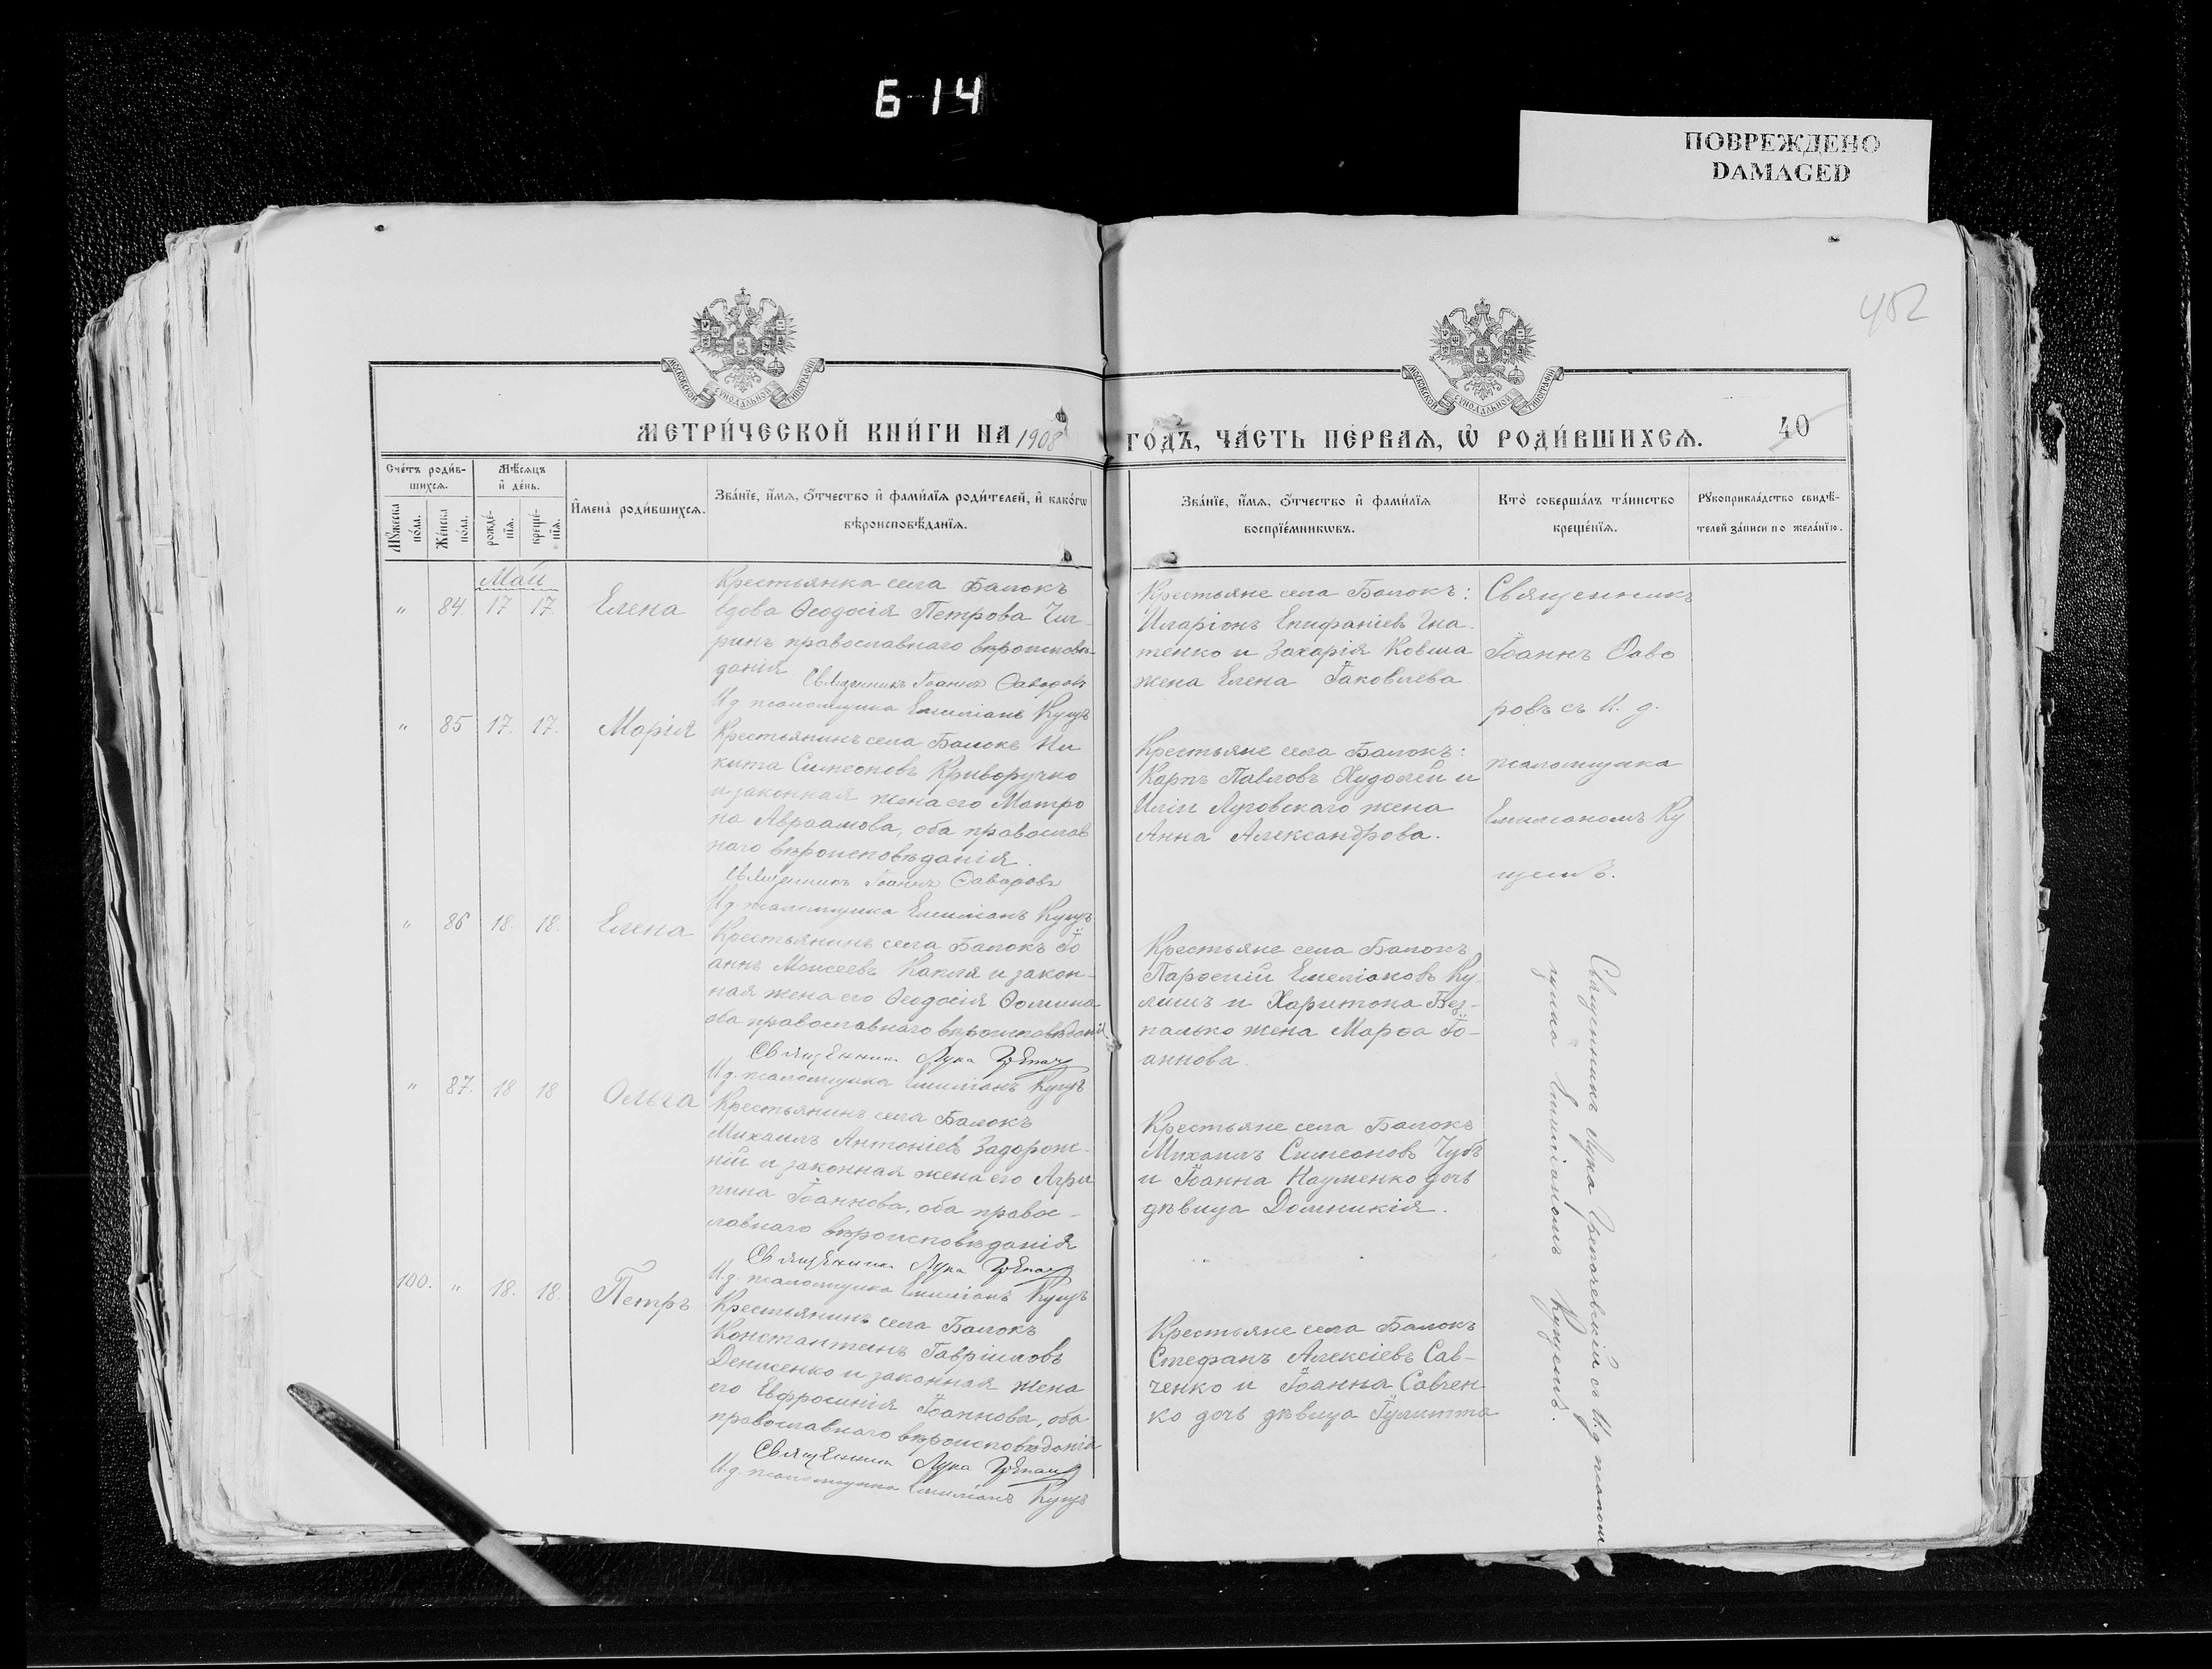 Б-14
ПОВРЕЖДЕНО
DAMAGED
452
МОСКОВСКОЙ СѴНОДАЛЬНОЙ ТИПОГРАФІИ
МОСКОВСКОЙ СѴНОДАЛЬНОЙ ТИПОГРАФІИ
МЕТРИ́ЧЕСКОЙ КНИ́ГИ НА 1908
ГО́ДЪ, ЧА́СТЬ ПЕ́РВАѦ, Ѡ҆ РОДИ́ВШИХСѦ. 40
Сче́тъ роди́в-
шихсѧ.
Мꙋ́жеска по́ла.
Же́нска по́ла.
Мѣ́сѧцъ
и҆ де́нь.
рожде́-
нїѧ.
креще́-
нїѧ.
И҆мена̀ роди́вшихсѧ.
Зва́нїе, и҆́мѧ, ѻ҆́тчество и҆ фами́лїѧ роди́телей, и҆ како́гѡ
вѣроисповѣ́данїѧ.
Зва́нїе, и҆́мѧ, ѻ҆́тчество и҆ фами́лїѧ
воспрїе́мникѡвъ.
Кто̀ соверша́лъ та́инство
креще́нїѧ.
Рꙋкоприкла́дство свидѣ́-
телей за́писи по жела́нїю.
Май
" 84 17 17. Елена
Крестьянка села Балокъ
вдова Ѳеодосія Петрова Чиг-
ринъ православнаго вѣроисповѣ-
данія
Священникъ Іоаннъ Ѳаворовъ
И.д. псаломщика Емиліанъ Куцъ
Крестьяне села Балокъ:
Иларіонъ Епифаніевъ Гна-
тенко и Захарія Ковша
жена Елена Іаковлева
Священникъ
Іоаннъ Ѳаво
ровъ съ И. д.
псаломщика
Емиліаномъ Ку
цемъ.
" 85 17. 17. Марія
Крестьянинъ села Балокъ Ни
кита Симеоновъ Криворучко
и законная жена его Матро
на Авраамова, оба православ
наго вѣроисповѣданія.
Священникъ Іоаннъ Ѳаворовъ
И.д. псаломщика Емиліанъ Куцъ
Крестьяне села Балокъ:
Карпъ Павловъ Худолей и
Иліи Луговскаго жена
Анна Александрова.
" 86 18. 18. Елена
Крестьянинъ села Балокъ Іо
аннъ Моисеевъ Капля и закон-
ная жена его Ѳеодосія Ѳомина
оба православнаго вѣроисповѣданія
Священникъ Лука
И.д. псаломщика Емиліанъ Куцъ
Крестьяне села Балокъ
Парѳеній Емеліановъ Ку-
лишъ и Харитона Без-
палько жена Марѳа Іо-
аннова.
Священникъ Лука съ И.д псалом
щика Емиліаномъ Куцемъ.
" 87. 18 18 Ольга
Крестьянинъ села Балокъ
Михаилъ Антоніевъ Задорож-
ній и законная жена его Агри
пина Іоаннова, оба правос-
лавнаго вѣроисповѣданія
Священникъ Лука
И.д. псаломщика Емиліанъ Куцъ
Крестьяне села Балокъ
Михаилъ Симеоновъ Чубъ
и Іоанна Науменко дочь
дѣвица Домникія.
100. " 18. 18. Петръ
Крестьянинъ села Балокъ
Константинъ Гавріиловъ
Денисенко и законная жена
его Евфросинія Іоаннова, оба
православнаго вѣроисповѣданія
Священникъ Лука
И.д. псаломщика Емиліанъ Куцъ
Крестьяне села Балокъ
Стефанъ Алексіевъ Сав-
ченко и Іоанна Савчен
ко дочь дѣвица Іулитта